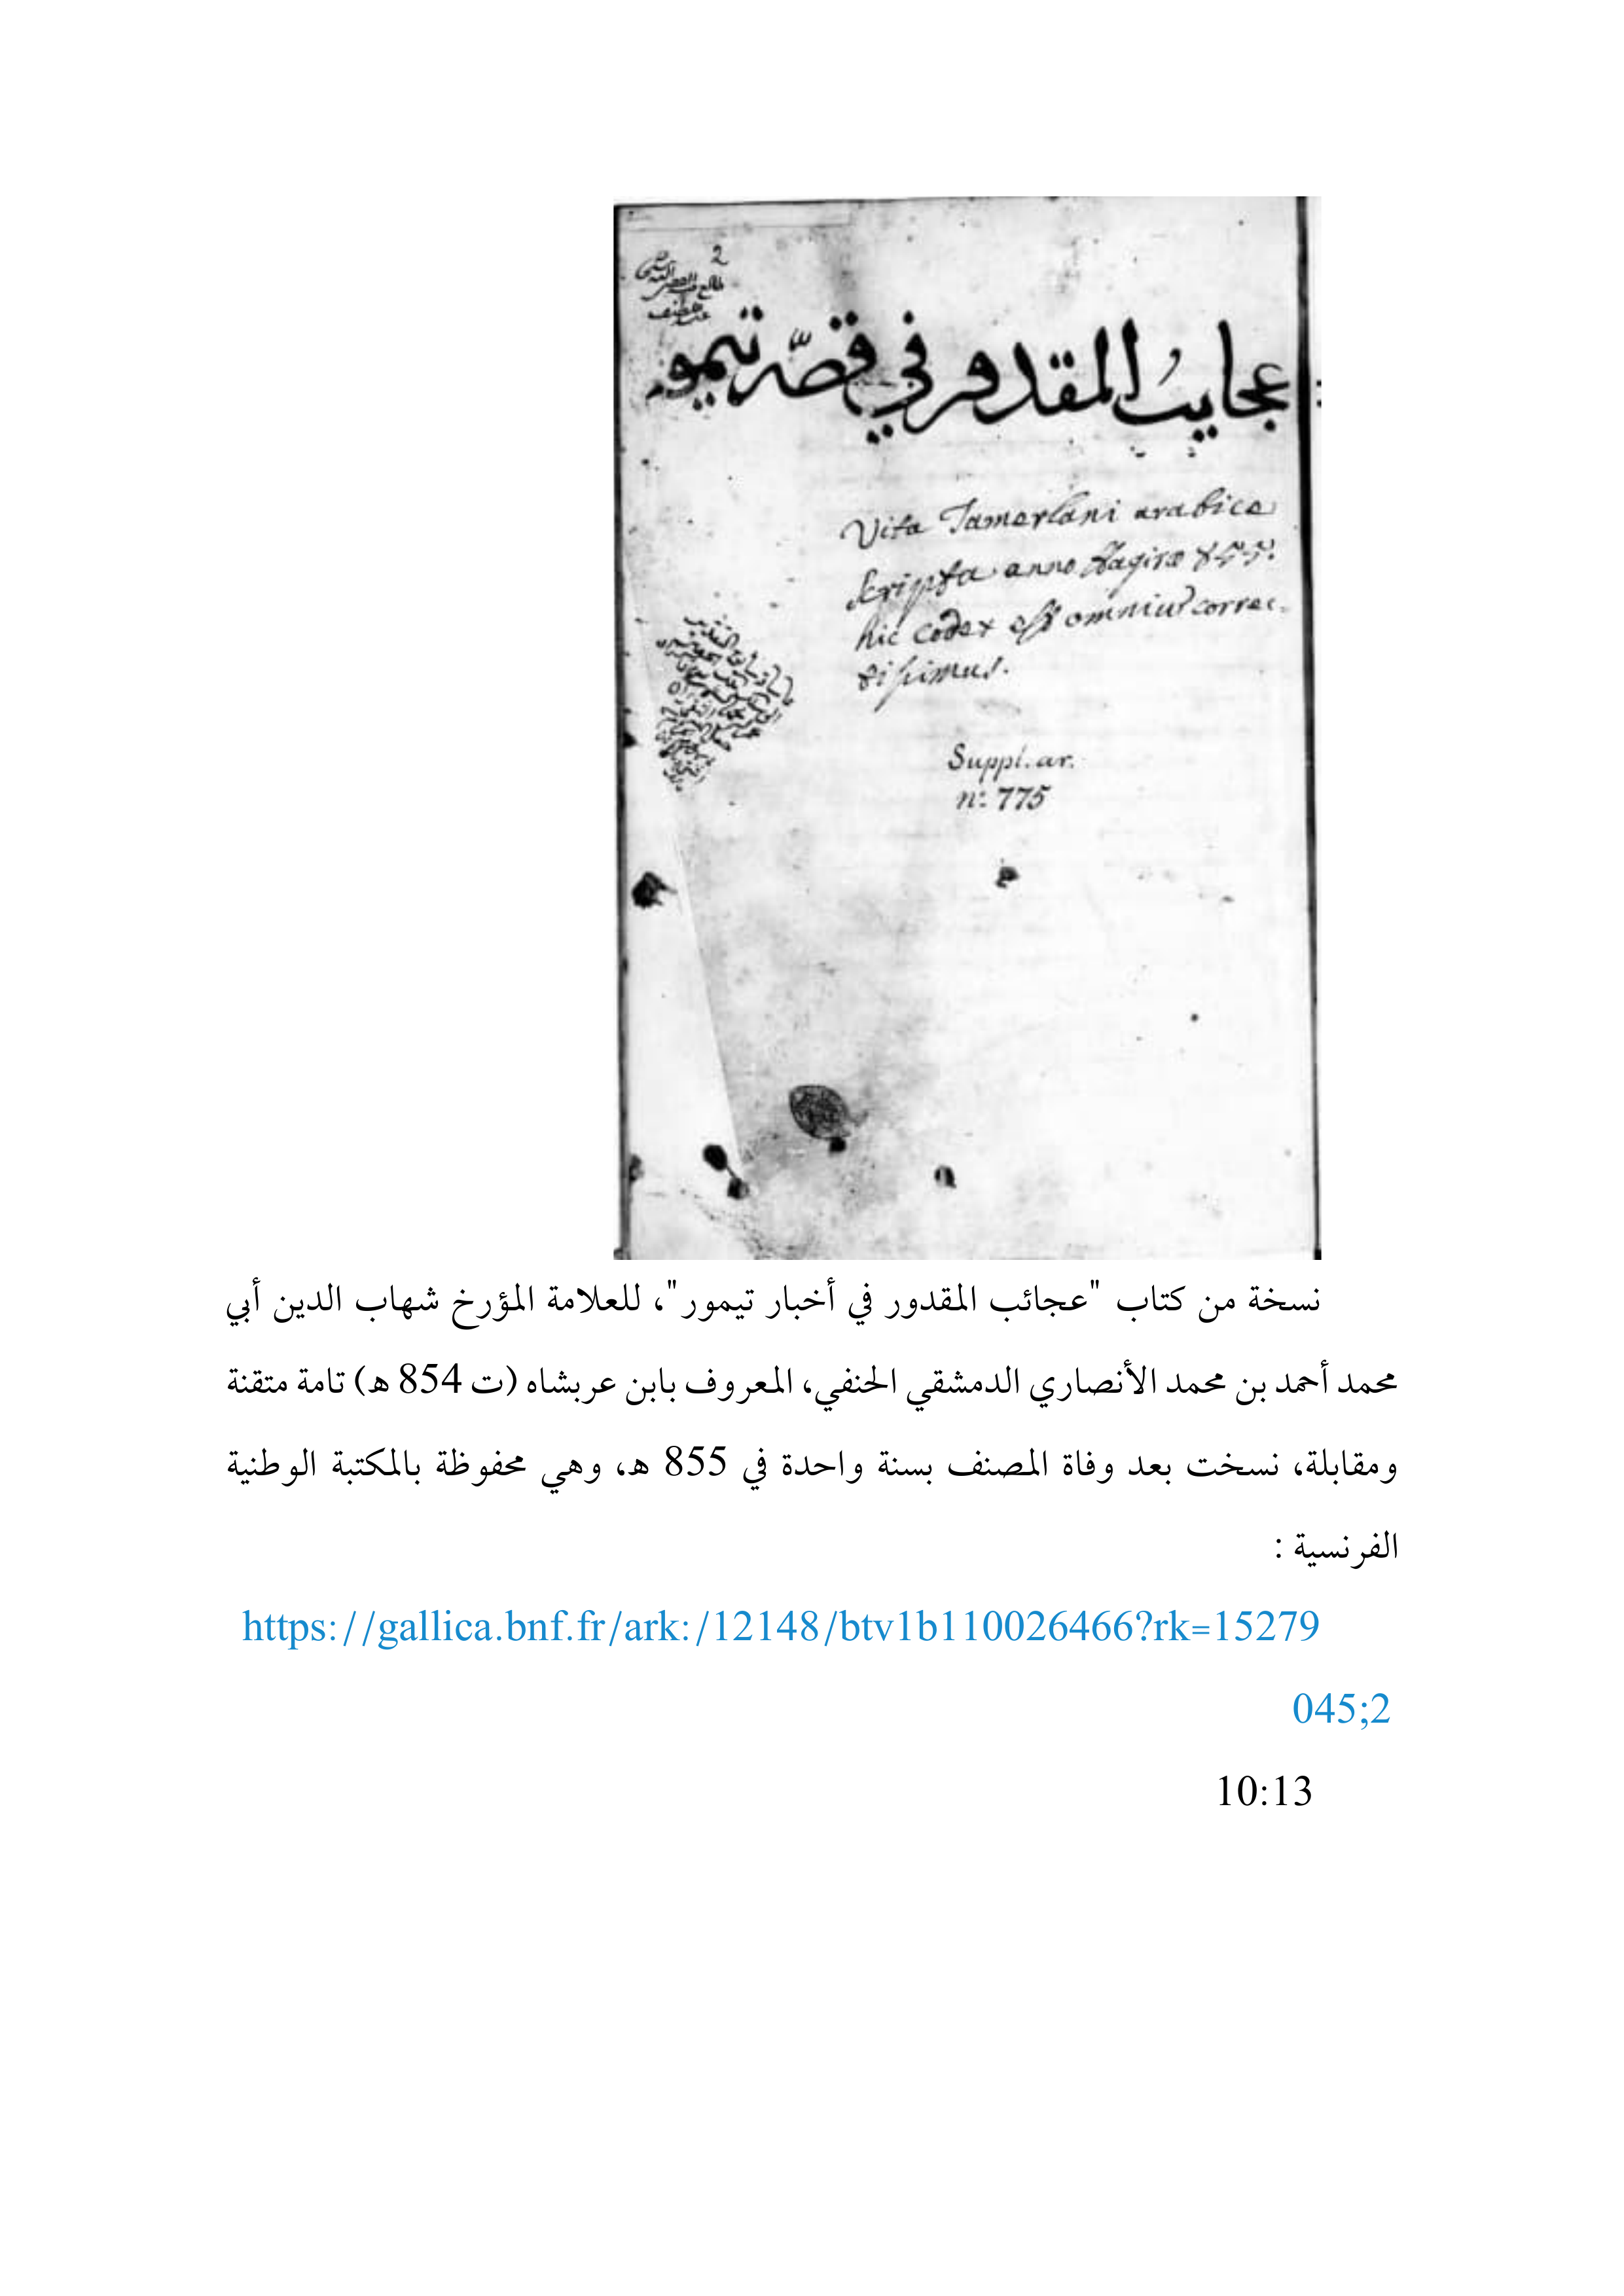 2
طالع فيه
عجايب المقدور في قصّه تيمور
Vita Tamerlani arabice
scripta anno Hagiræ 855.
hic codex est omniũ correc-
tissimus.
Suppl. ar.
n: 775
نسخة من كتاب "عجائب المقدور في أخبار تيمور"، للعلامة المؤرخ شهاب الدين أبي
محمد أحمد بن محمد الأنصاري الدمشقي الحنفي، المعروف بابن عربشاه (ت 854 هـ) تامة متقنة
ومقابلة، نسخت بعد وفاة المصنف بسنة واحدة في 855 هـ، وهي محفوظة بالمكتبة الوطنية
الفرنسية :
https://gallica.bnf.fr/ark:/12148/btv1b110026466?rk=15279
045;2
10:13